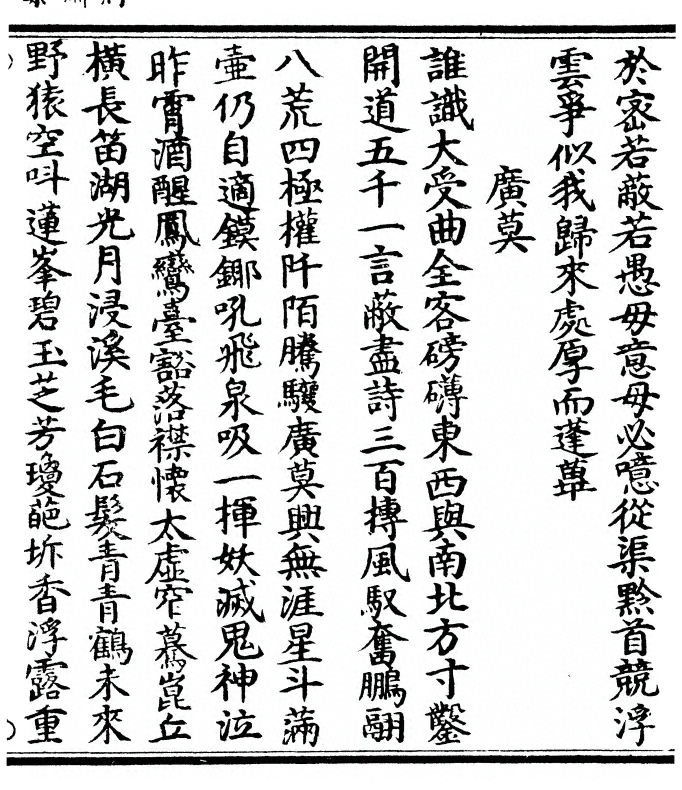 於密若蔽若愚毋意毋必噫從渠黔首競浮
雲爭似我歸來處厚而蓬蓽
廣莫
誰識大受曲全客磅礴東西與南北方寸鑿
開道五千一言蔽盡詩三百摶風馭奮鵬翮
八荒四極權阡陌騰驤廣莫興無涯星斗滿
壷仍自適鏌鋣吼飛泉吸一揮妖滅鬼神泣
昨霄酒醒鳳鸞臺豁落襟懷太虛窄驀崑丘
橫長笛湖光月浸溪毛白石髮青青鶴未來
野猿空呌蓮峯碧玉芝芳瓊葩坼香浮露重